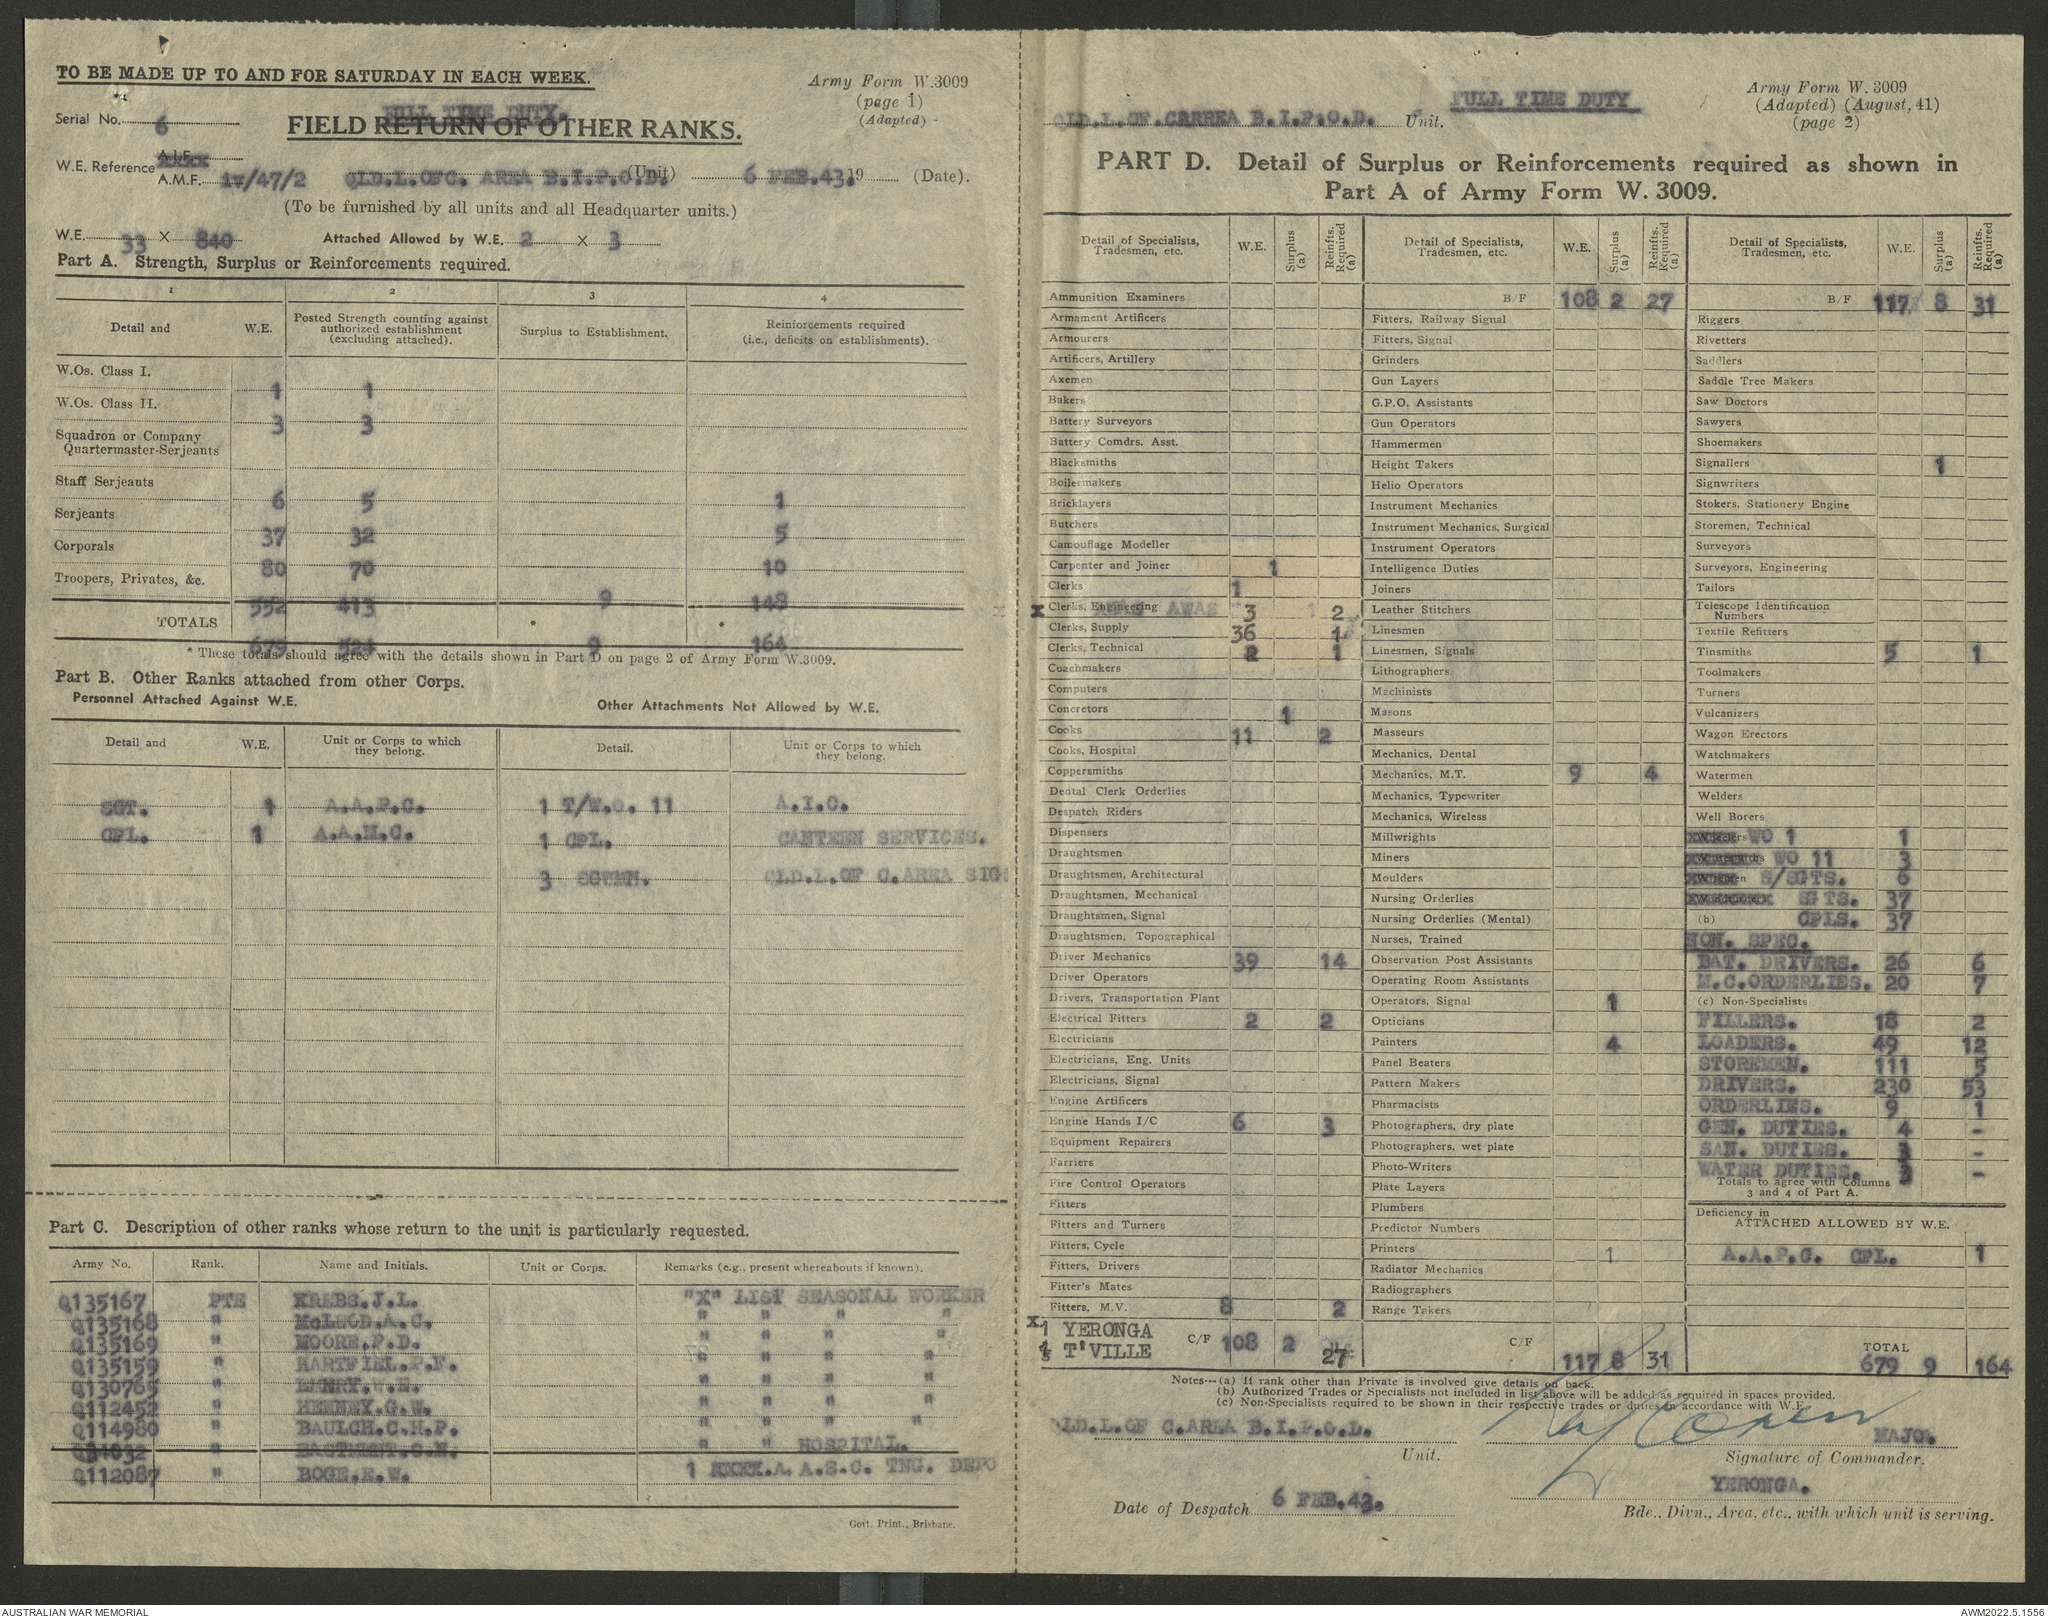 TO BE MADE UP TO AND FOR SATURDAY IN EACH WEEK.
Army Form W.3009
(page 1)
(Adapted)
Serial No. 6
FULL TIME DUTY.
FIELD RETURN OF OTHER RANKS.
W.E. Reference A.I.F.
A.M.F. 1v/47/2 QLD.L.OFC. AREA B.I.P.O.D. (Unit) 6 FEB.43. 19 (Date).
(To be furnished by all units and all Headquarter units.)
W.E. 33 X 840 Attached Allowed by W.E. 2 X 3
Part A. Strength, Surplus or Reinforcements required.
1 2 3 4
Detail and W.E. Posted Strength counting against authorized establishment (excluding attached). Surplus to Establishment. Reinforcements required (i.e., deficits on establishments).
W.Os. Class I. 1 1
W.Os. Class II. 3 3
Squadron or Company
Quartermaster-Serjeants
Staff Serjeants 6 5 1
Serjeants 37 32 5
Corporals 80 70 10
Troopers, Privates, &c. 552 413 9 148
TOTALS 679 524 * 9 * 164
* These totals should agree with the details shown in Part D on page 2 of Army Form W.3009.
Part B. Other Ranks attached from other Corps.
Personnel Attached Against W.E. Other Attachments Not Allowed by W.E.
Detail and W.E. Unit or Corps to which they belong. Detail. Unit or Corps to which they belong.
SGT. 1 A.A.P.C. 1 T/W.O. 11 A.I.C.
CPL. 1 A.A.M.C. 1 CPL. CANTEEN SERVICES.
3 SGTMN. QLD.L.OF C.AREA SIG
Part C. Description of other ranks whose return to the unit is particularly requested.
Army No. Rank. Name and Initials. Unit or Corps. Remarks (e.g., present whereabouts if known).
Q135167 PTE KREBS.J.L. "X" LIST SEASONAL WORKER
Q135168 " McLEOD.A.C. " " " "
Q135169 " MOORE.F.D. " " " "
Q135159 " HARTFIEL.P.F. " " " "
Q130765 " EMERY.W.E. " " " "
Q112452 " HENNEY.G.W. " " " "
Q114980 " BAULCH.C.H.P. " " " "
" EASTMENT.C.N. " " HOSPITAL.
Q112087 " BOGE.E.W. 1 A.A.S.C. TNG. DEPO
Govt. Print., Brisbane.
QLD.L.OF.CAREEA B.I.P.O.D. Unit. FULL TIME DUTY
Army Form W.3009
(Adapted) (August, 41)
(page 2)
PART D. Detail of Surplus or Reinforcements required as shown in
Part A of Army Form W. 3009.
Detail of Specialists, Tradesmen, etc. W.E. Surplus (a) Reinfts. Required (a)
Ammunition Examiners
Armament Artificers
Armourers
Artificers, Artillery
Axemen
Bakers
Battery Surveyors
Battery Comdrs. Asst.
Blacksmiths
Boilermakers
Bricklayers
Butchers
Camouflage Modeller
Carpenter and Joiner 1
Clerks 1
X Clerks, Engineering AWAS 3 2
Clerks, Supply 36 1
Clerks, Technical 2 1
Coachmakers
Computers
Concretors 1
Cooks 11 2
Cooks, Hospital
Coppersmiths
Dental Clerk Orderlies
Despatch Riders
Dispensers
Draughtsmen
Draughtsmen, Architectural
Draughtsmen, Mechanical
Draughtsmen, Signal
Draughtsmen, Topographical
Driver Mechanics 39 14
Driver Operators
Drivers, Transportation Plant
Electrical Fitters 2 2
Electricians
Electricians, Eng. Units
Electricians, Signal
Engine Artificers
Engine Hands I/C 6 3
Equipment Repairers
Farriers
Fire Control Operators
Fitters
Fitters and Turners
Fitters, Cycle
Fitters, Drivers
Fitter's Mates
Fitters, M.V. 8 2
X1 YERONGA
T'VILLE C/F 108 2 27
Detail of Specialists, Tradesmen, etc. W.E. Surplus (a) Reinfts. Required (a)
B/F 108 2 27
Fitters, Railway Signal
Fitters, Signal
Grinders
Gun Layers
G.P.O. Assistants
Gun Operators
Hammermen
Height Takers
Helio Operators
Instrument Mechanics
Instrument Mechanics, Surgical
Instrument Operators
Intelligence Duties
Joiners
Leather Stitchers
Linesmen
Linesmen, Signals
Lithographers
Machinists
Masons
Masseurs
Mechanics, Dental
Mechanics, M.T. 9 4
Mechanics, Typewriter
Mechanics, Wireless
Millwrights
Miners
Moulders
Nursing Orderlies
Nursing Orderlies (Mental)
Nurses, Trained
Observation Post Assistants
Operating Room Assistants
Operators, Signal 1
Opticians
Painters 4
Panel Beaters
Pattern Makers
Pharmacists
Photographers, dry plate
Photographers, wet plate
Photo-Writers
Plate Layers
Plumbers
Predictor Numbers
Printers 1
Radiator Mechanics
Radiographers
Range Takers
C/F 117 8 31
Detail of Specialists, Tradesmen, etc. W.E. Surplus (a) Reinfts. Required (a)
B/F 117 8 31
Riggers
Rivetters
Saddlers
Saddle Tree Makers
Saw Doctors
Sawyers
Shoemakers
Signallers 1
Signwriters
Stokers, Stationery Engine
Storemen, Technical
Surveyors
Surveyors, Engineering
Tailors
Telescope Identification Numbers
Textile Refitters
Tinsmiths 5 1
Toolmakers
Turners
Vulcanizers
Wagon Erectors
Watchmakers
Watermen
Welders
Well Borers
Wheelers WO 1 1
WO 11 3
S/SGTS. 6
SGTS. 37
(b) CPLS. 37
NON. SPEC.
BAT. DRIVERS. 26 6
M.C.ORDERLIES. 20 7
(c) Non-Specialists
FILLERS. 18 2
LOADERS. 49 12
STOREMEN. 111 5
DRIVERS. 230 53
ORDERLIES. 9 1
GEN. DUTIES. 4 -
SAN. DUTIES. 3 -
WATER DUTIES. 3 -
Totals to agree with Columns
3 and 4 of Part A.
Deficiency in
ATTACHED ALLOWED BY W.E.
A.A.P.C. CPL. 1
TOTAL 679 9 164
Notes—(a) If rank other than Private is involved give details on back.
(b) Authorized Trades or Specialists not included in list above will be added as required in spaces provided.
(c) Non-Specialists required to be shown in their respective trades or duties in accordance with W.E.
QLD.L.OF C.AREA B.I.P.O.D. Unit.
MAJOR
Signature of Commander.
Date of Despatch 6 FEB.43.
YERONGA.
Bde., Divn., Area, etc., with which unit is serving.
AUSTRALIAN WAR MEMORIAL
AWM2022.5.1556